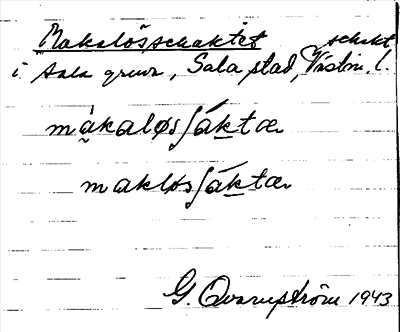 Makalösschaktet schakt
i Sala gruva, Sala stad, Västm. l.
màkaløsʃáktæ
makløsʃáktæ
G. Qvarnström 1943